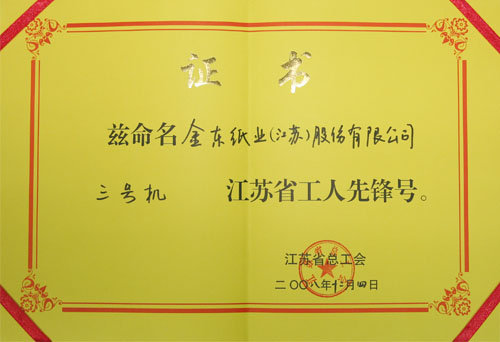 证书
兹命名金东纸业(江苏)股份有限公司
三号机 江苏省工人先锋号。
江苏省总工会
二〇〇八年十二月四日